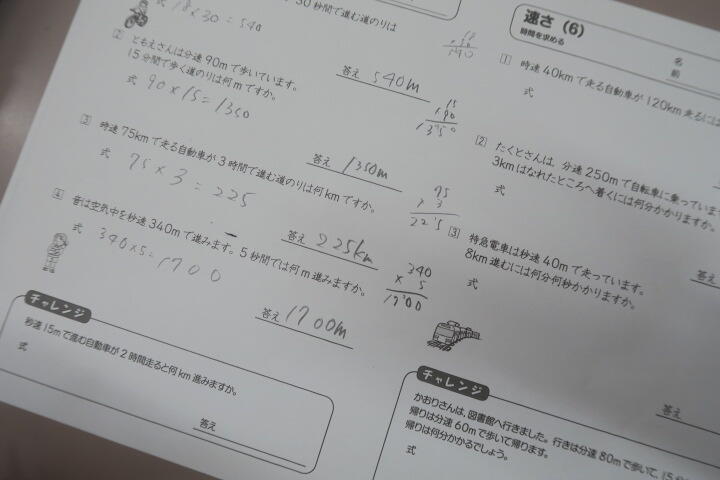 30秒間で進む道のりは
18×30=540
540m
[2] ともえさんは分速90mで歩いています。
15分間で歩く道のりは何mですか。
式 90×15=1350
15
×90
1350
答え 1350m
[3] 時速75kmで走る自動車が3時間で進む道のりは何kmですか。
式 75×3=225
75
× 3
225
答え 225km
[4] 音は空気中を秒速340mで進みます。5秒間では何m進みますか。
式 340×5=1700
× 5
1700
答え 1700m
チャレンジ
秒速15mで進む自動車が2時間走ると何km進みますか。
式
答え
速さ(6)
時間を求める
名前
[1] 時速40kmで走る自動車が120km走るには
式
[2] たくとさんは、分速250mで自転車に乗っていま
3kmはなれたところへ着くには何分かかりますか。
式
答え
[3] 特急電車は秒速40mで走っています。
8km進むには何分何秒かかりますか。
式
答え
チャレンジ
かおりさんは、図書館へ行きました。行きは分速80mで歩いて、15分
帰りは分速60mで歩いて帰ります。
帰りは何分かかるでしょう。
式